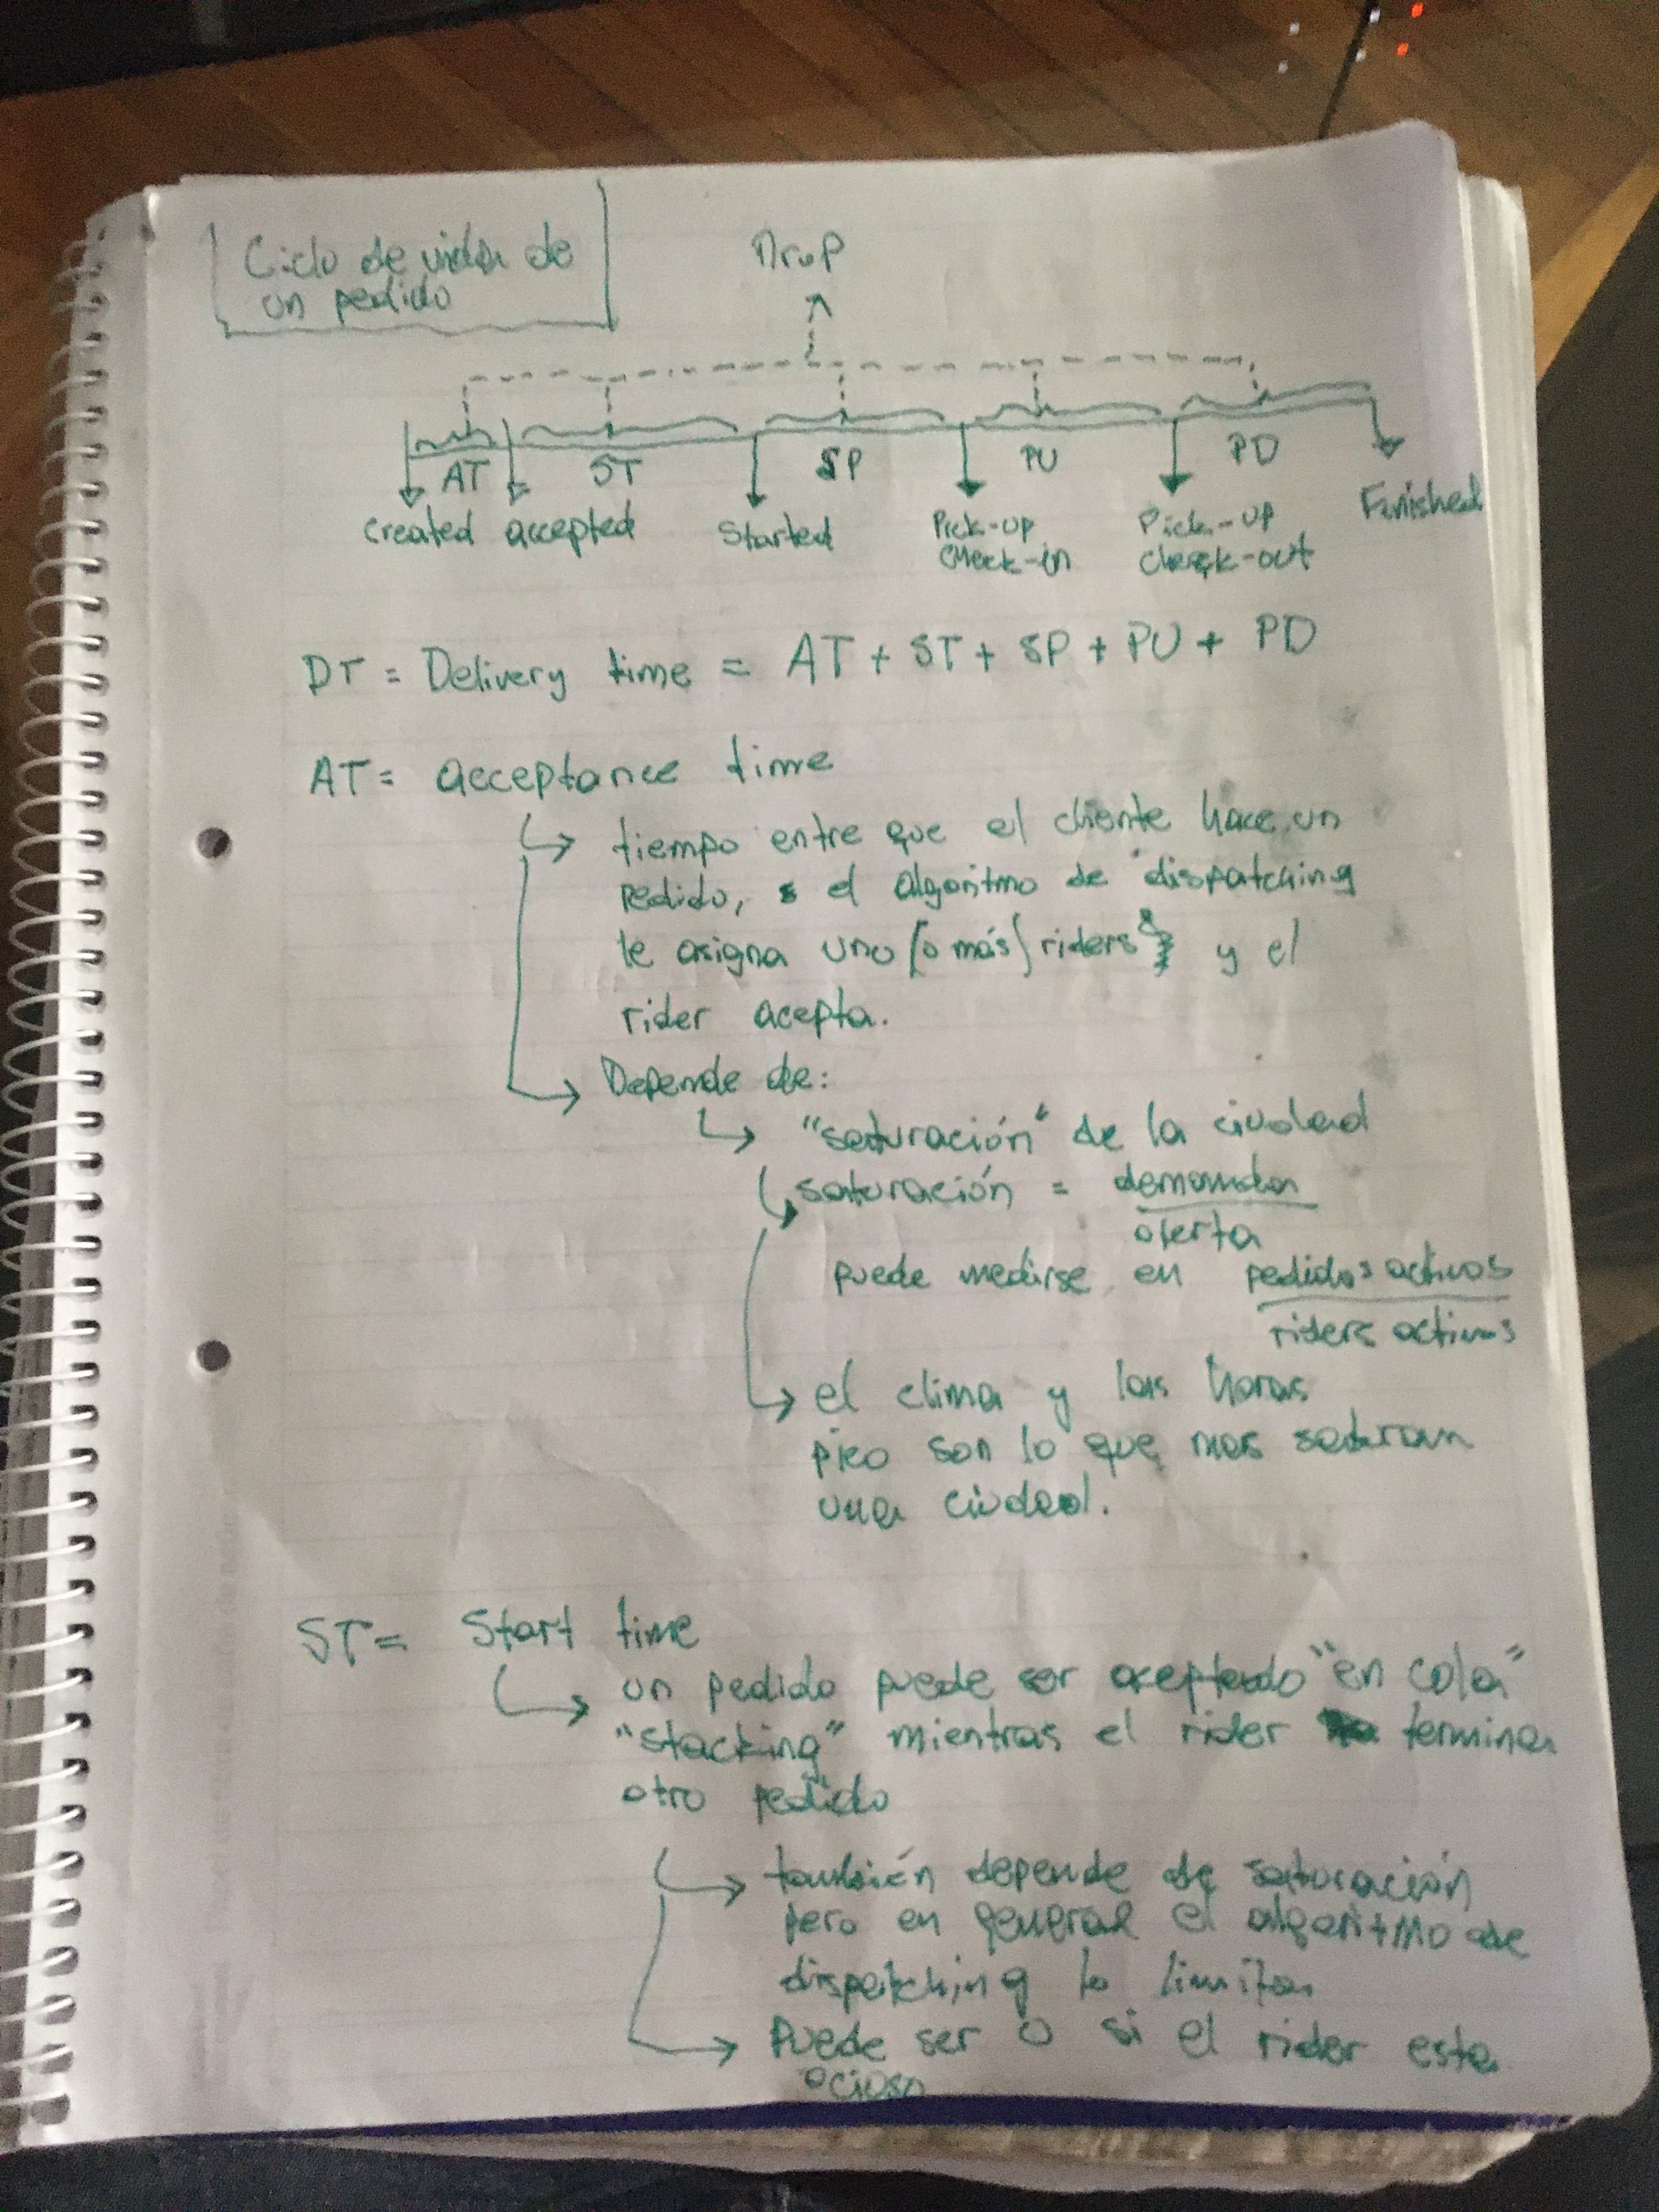 Ciclo de vida de
un pedido
Drop
AT ST SP PU PD
created accepted Started Pick-up check-in Pick-up check-out Finished
DT = Delivery time = AT + ST + SP + PU + PD
AT = acceptance time
tiempo entre que el cliente hace un
pedido, el algoritmo de dispatching
le asigna uno (o más) riders y el
rider acepta.
Depende de:
"saturación" de la ciudad
saturación = demanda
oferta
puede medirse en pedidos activos
riders activos
el clima y las horas
pico son lo que mas saturan
una ciudad.
ST = Start time
un pedido puede ser aceptado "en cola"
"stacking" mientras el rider termina
otro pedido
también depende de saturación
pero en general el algoritmo de
dispatching lo limita
Puede ser 0 si el rider esta
ocioso